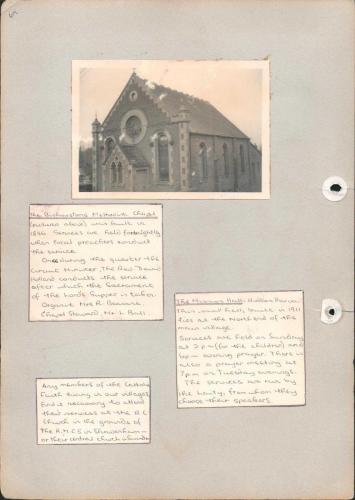 The Methodist Chapel
(pictured above) was built in
1886. Services are held fortnightly
when local preachers conduct
the service.
Once during the quarter the
Circuit Minister, The Rev. David
conducts the service
after which the Sacrament
of the Lord's Supper is taken.
Organist Mrs R.
Chapel Steward, Mr L. Ball
The Mission Hall
This small hall, built in 1911
lies at the North end of the
main village.
Services are held on Sundays
at 2 p.m (for the children) and
6pm evening prayer. There is
also a prayer meeting at
7pm on Tuesday evenings.
The services are run by
the laity, from whom they
choose their speakers.
Any members of the Catholic
Faith living in our villages,
find it necessary to attend
their services at the R.C
Church in the grounds of
the R.M.C.S in Shrivenham –
or their central church in